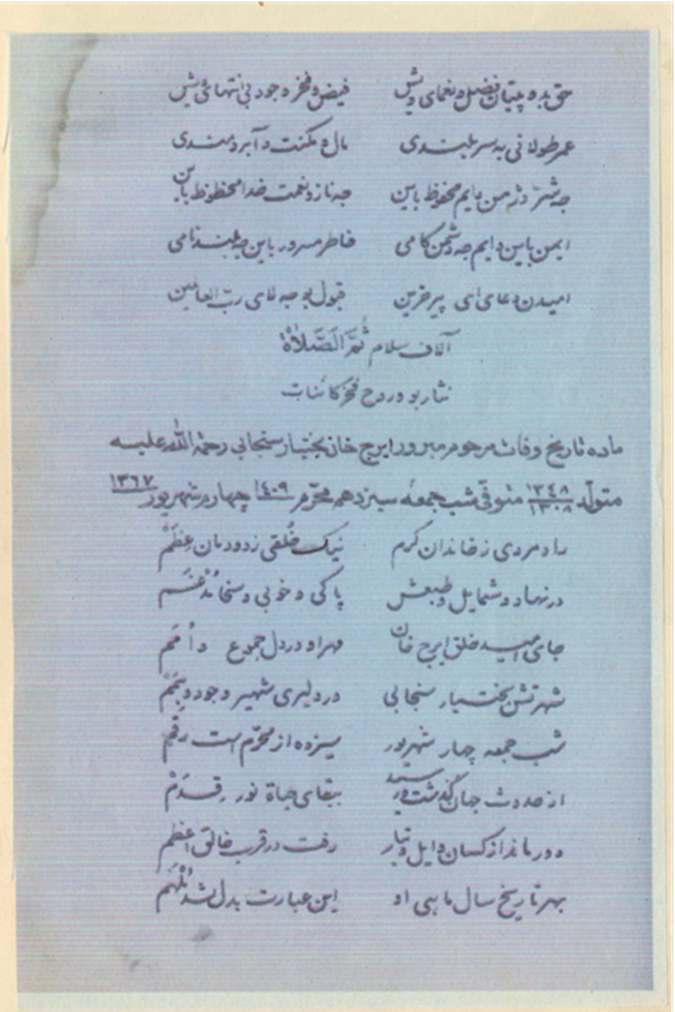 حق بدو پیتان فضل و نعمای ویش فیض و فخر و جود بی انتهای ویش
عمر طولانی به سر بلندی مال و مکنت و آبرومندی
جه شر دژمن دایم محفوظ باین جه ناز و نعمت خدا محظوظ باین
ایمن باین دایم جه دشمن کامی خاطر مسرور باین جه بلند نامی
امیدن دعای ای پیر حزین قبول بو جه لای ربّ العالمین
آلاف سلام ثُمَّ الصَّلاٰة
نثار بو و روح فخر کائنات
ماده تاریخ وفات مرحوم مبرور ایرج خان بختیار سنجابی رحمة الله علیه
متولّد ۱۳۴۸ ۱۳۰۸ متوفّی شب جمعه سیزدهم محرّم ۱٤۰۹ چهار شهریور ۱۳٦۷
راد مردی ز خاندان کرم نیک خُلقی ز دودمان عِظَمْ
در نهاد و شمایل و طبعش پاکی و خوبی و سخا مُدْغَم
جای امید خلق ایرج خان مهر او در دل جموع و اُمَم
شهرتش بختیار سنجابی در دلیری شهیر وجود و شِیَمْ
شب جمعه چهار شهریور سیزده از محرّم است رقم
از حدوث جهان گذشت و رسید ببقای حیاة نور قِدَمْ
دور ماند از کسان و ایل و تبار رفت در قرب خالق اعظم
بهر تاریخ سال ماهی او این عبارت بدل شد مُلْهَم